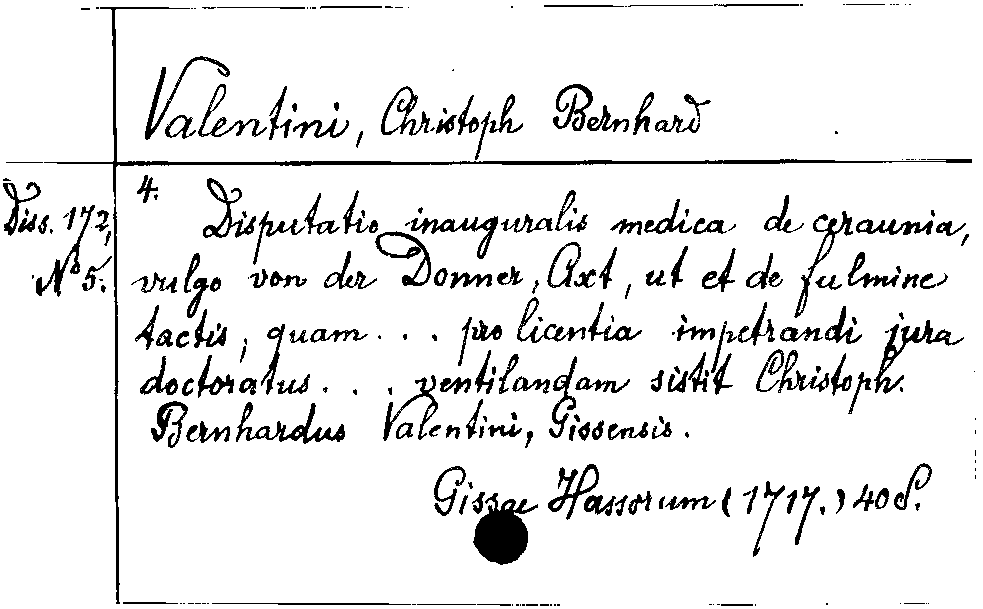 Valentini, Christoph Bernhard
Diss. 172,
No 5.
4.
Disputatio inauguralis medica de ceraunia,
vulgo von der Donner, Axt, ut et de fulmine
tactis, quam . . . pro licentia impetrandi jura
doctoratus . . . ventilandam sistit Christoph.
Bernhardus Valentini, Gissensis.
Gissae Hassorum (1717.) 40 S.